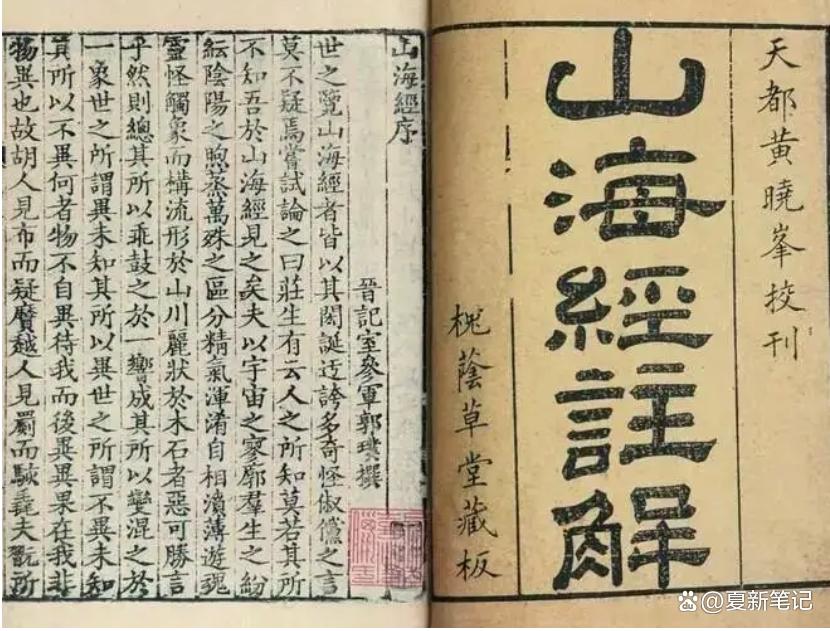 天都黄曉峯挍刊
山海經註解
槐蔭草堂藏板
山海經序
晉記室參軍郭璞撰
世之覽山海經者皆以其閎誕迂誇多奇怪俶儻之言
莫不疑焉嘗試論之曰莊生有云人之所知莫若其所
不知吾於山海經見之矣夫以宇宙之寥廓羣生之紛
紜陰陽之煦蒸萬殊之區分精氣渾淆自相濆薄遊魂
靈怪觸象而構流形於山川麗狀於木石者惡可勝言
乎然則總其所以乖鼓之於一響成其所以變混之於
一象世之所謂異未知其所以異世之所謂不異未知
其所以不異何者物不自異待我而後異異果在我非
物異也故胡人見布而疑黂越人見罽而駭毳夫翫所
@夏新笔记